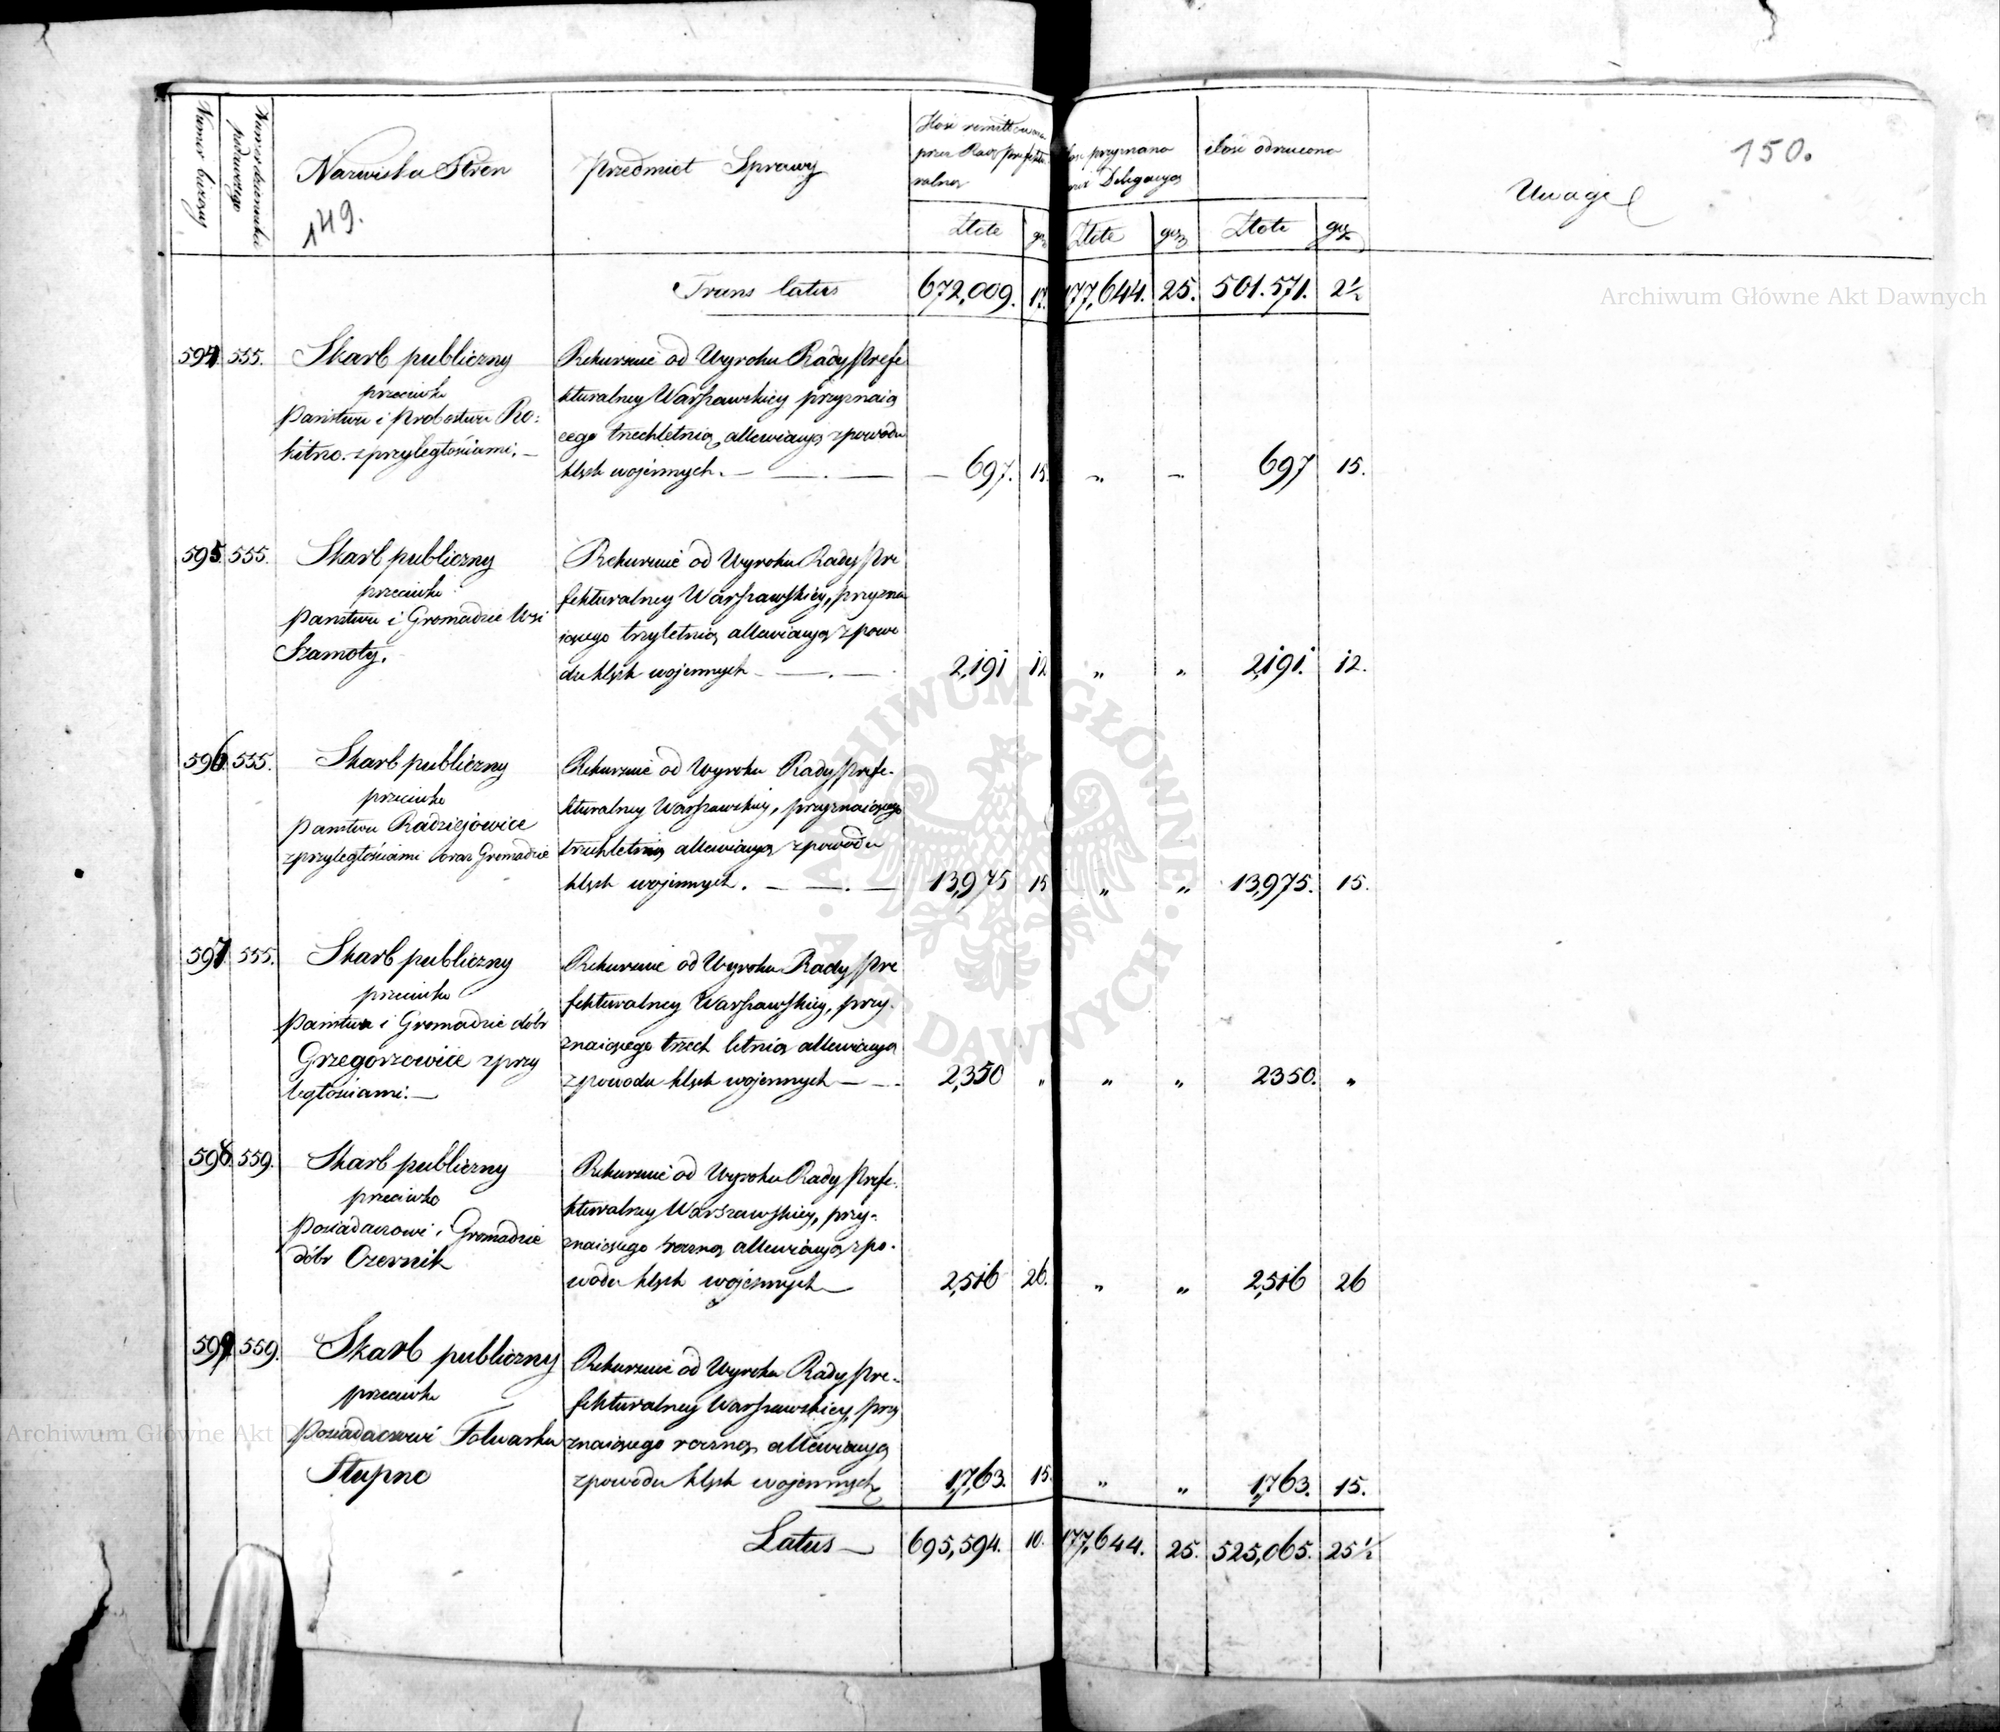 Numer bieżący
Numer dziennika
podawczego
Nazwiska Stron
149.
Przedmiot Sprawy
przez Radę Prefektu
ralną
Złote
gr
przyznana
przez Delegacyą
Złote
grz
ilość odrzucona
Złote
grz
Uwagi
150.
Trans latus 672,009. 17. 177,644. 25. 501.571. 2½
Archiwum Główne Akt Dawnych
594 555. Skarb publiczny
przeciwko
Państwu i Probostwu Ro:
kitno. z przyległościami. —
Rekursuie od Wyroku Rady Prefe
kturalney Warszawskiey przyznaią
cego trzechletnią allewiacyą z powodu
klęsk woiennych. — — . —
— 697. 15. „ — 697 15.
595. 555. Skarb publiczny
przeciwko
Państwu i Gromadzie Wsi
Szamoty.
Rekursuie od Wyroku Rady Pre
fekturalney Warszawskiey, przyzna
iącego trzyletnią allewiacyą z powo
du klęsk wojennych — — . —
2,191 12 „ „ 2,191. 12.
596. 555. Skarb publiczny
przeciwko
Państwu Radziejowice
z przyległościami oraz Gromadzie
Rekursuie od Wyroku Rady Prefe-
kturalney Warszawskiey, przyznaiącego
trzechletnią allewiacyą z powodu
klęsk wojennych. — — . —
13,975 15 „ „ 13,975. 15.
597. 555. Skarb publiczny
przeciwko
Państwu i Gromadzie dóbr
Grzegorzewice z przy
ległościami. —
Rekursuie od Wyroku Rady Pre
fekturalney Warszawskiey, przy-
znaiącego trzech letnią allewiacyą
z powodu klęsk wojennych — —
2,350 „ „ „ 2350. „
598. 559. Skarb publiczny
przeciwko
Posiadaczowi i Gromadzie
dóbr Czernik
Rekursuie od Wyroku Rady Prefe-
kturalney Warszawskiey, przy-
znaiącego roczną allewiacyą z po-
wodu klęsk wojennych —
2,516 26. „ „ 2,516 26
599 559. Skarb publiczny
przeciwko
Posiadaczowi Folwarku
Słupno
Rekursuie od Wyroku Rady Pre-
fekturalney Warszawskiey, przy
znaiącego roczną allewiacyą
z powodu klęsk wojennych
1,763. 15. „ „ 1,763. 15.
Archiwum Główne Akt Dawnych
Latus — 695,594. 10. 177,644. 25. 525,065. 25½
ARCHIWUM GŁÓWNE AKT DAWNYCH